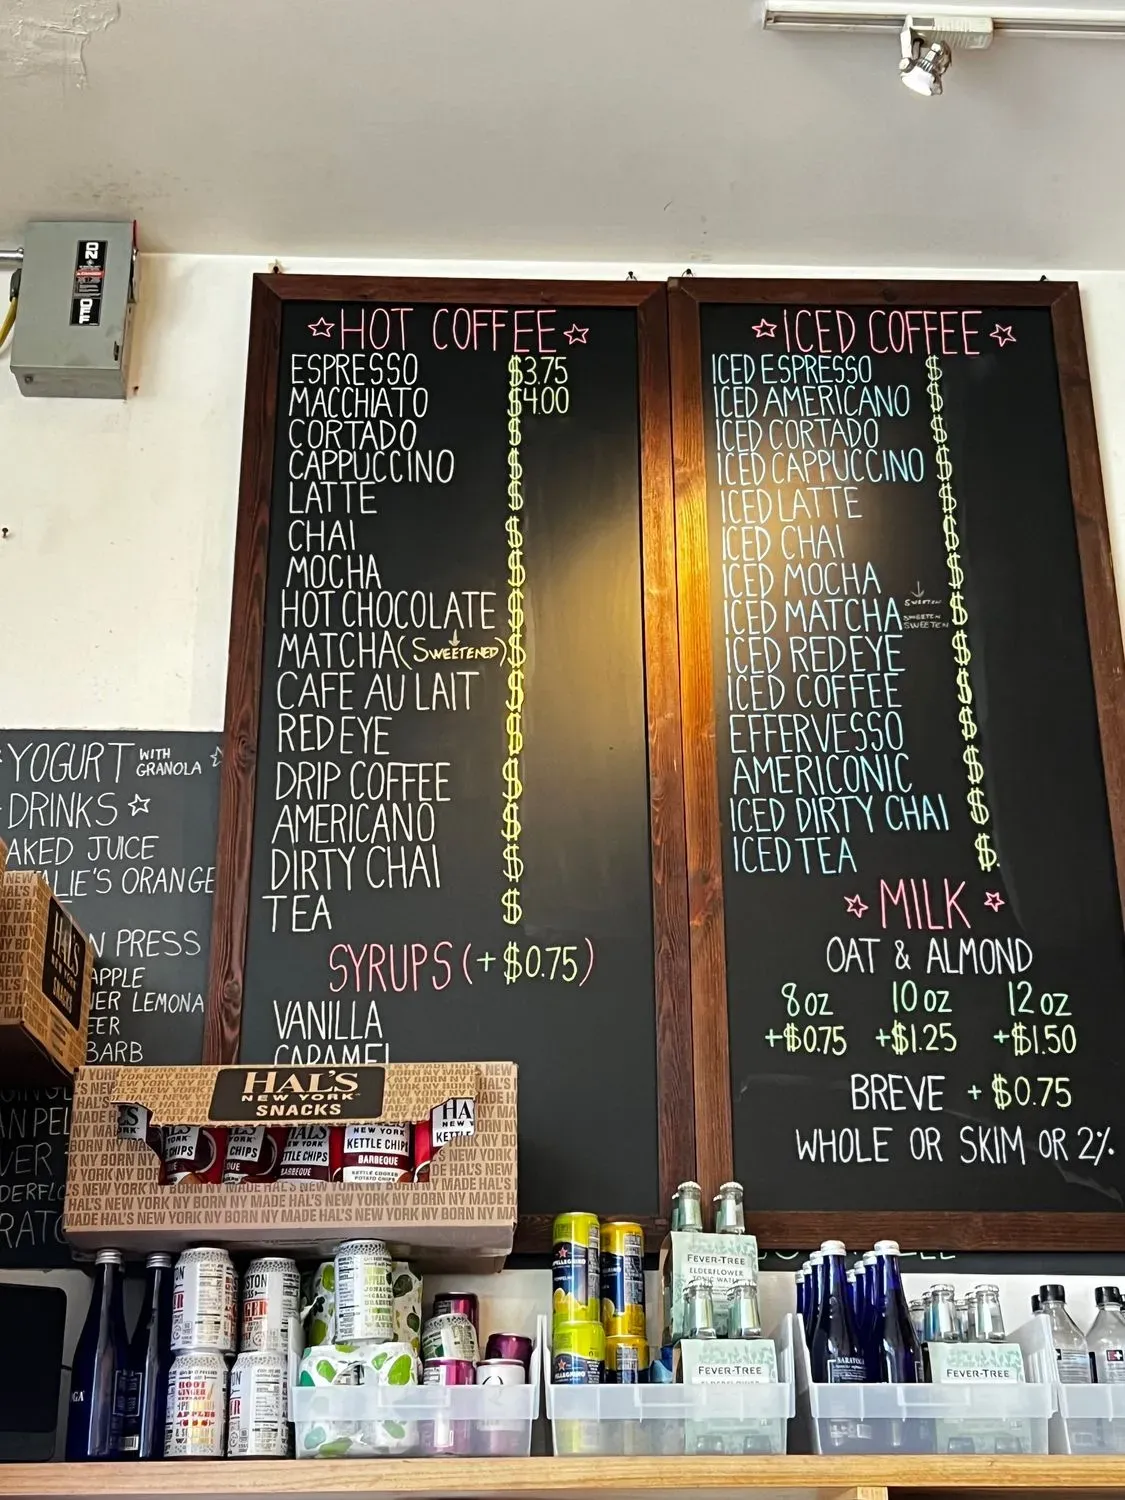 ☆HOT COFFEE☆
ESPRESSO $3.75
MACCHIATO $4.00
CORTADO $
CAPPUCCINO $
LATTE $
CHAI $
MOCHA $
HOT CHOCOLATE $
MATCHA (SWEETENED) $
CAFE AU LAIT $
RED EYE $
DRIP COFFEE $
AMERICANO $
DIRTY CHAI $
TEA $
SYRUPS (+$0.75)
VANILLA
CARAMEL
☆ICED COFFEE☆
ICED ESPRESSO $
ICED AMERICANO $
ICED CORTADO $
ICED CAPPUCCINO $
ICED LATTE $
ICED CHAI $
ICED MOCHA $
ICED MATCHA SWEETEN $
ICED RED EYE $
ICED COFFEE $
EFFERVESSO $
AMERICONIC $
ICED DIRTY CHAI $
ICED TEA $.
☆MILK☆
OAT & ALMOND
8 OZ 10 OZ 12 OZ
+$0.75 +$1.25 +$1.50
BREVE +$0.75
WHOLE OR SKIM OR 2%
YOGURT WITH GRANOLA ☆
DRINKS ☆
AKED JUICE
ALIE'S ORANGE
N PRESS
APPLE
ER LEMONA
EER
BARB
HAL'S
NEW YORK
SNACKS
KETTLE CHIPS
BARBEQUE
KETTLE COOKED
POTATO CHIPS
HAL'S NEW YORK NY BORN NY MADE
FEVER-TREE
ELDERFLOWER
TONIC WATER
FEVER-TREE
FEVER-TREE
SARATOGA